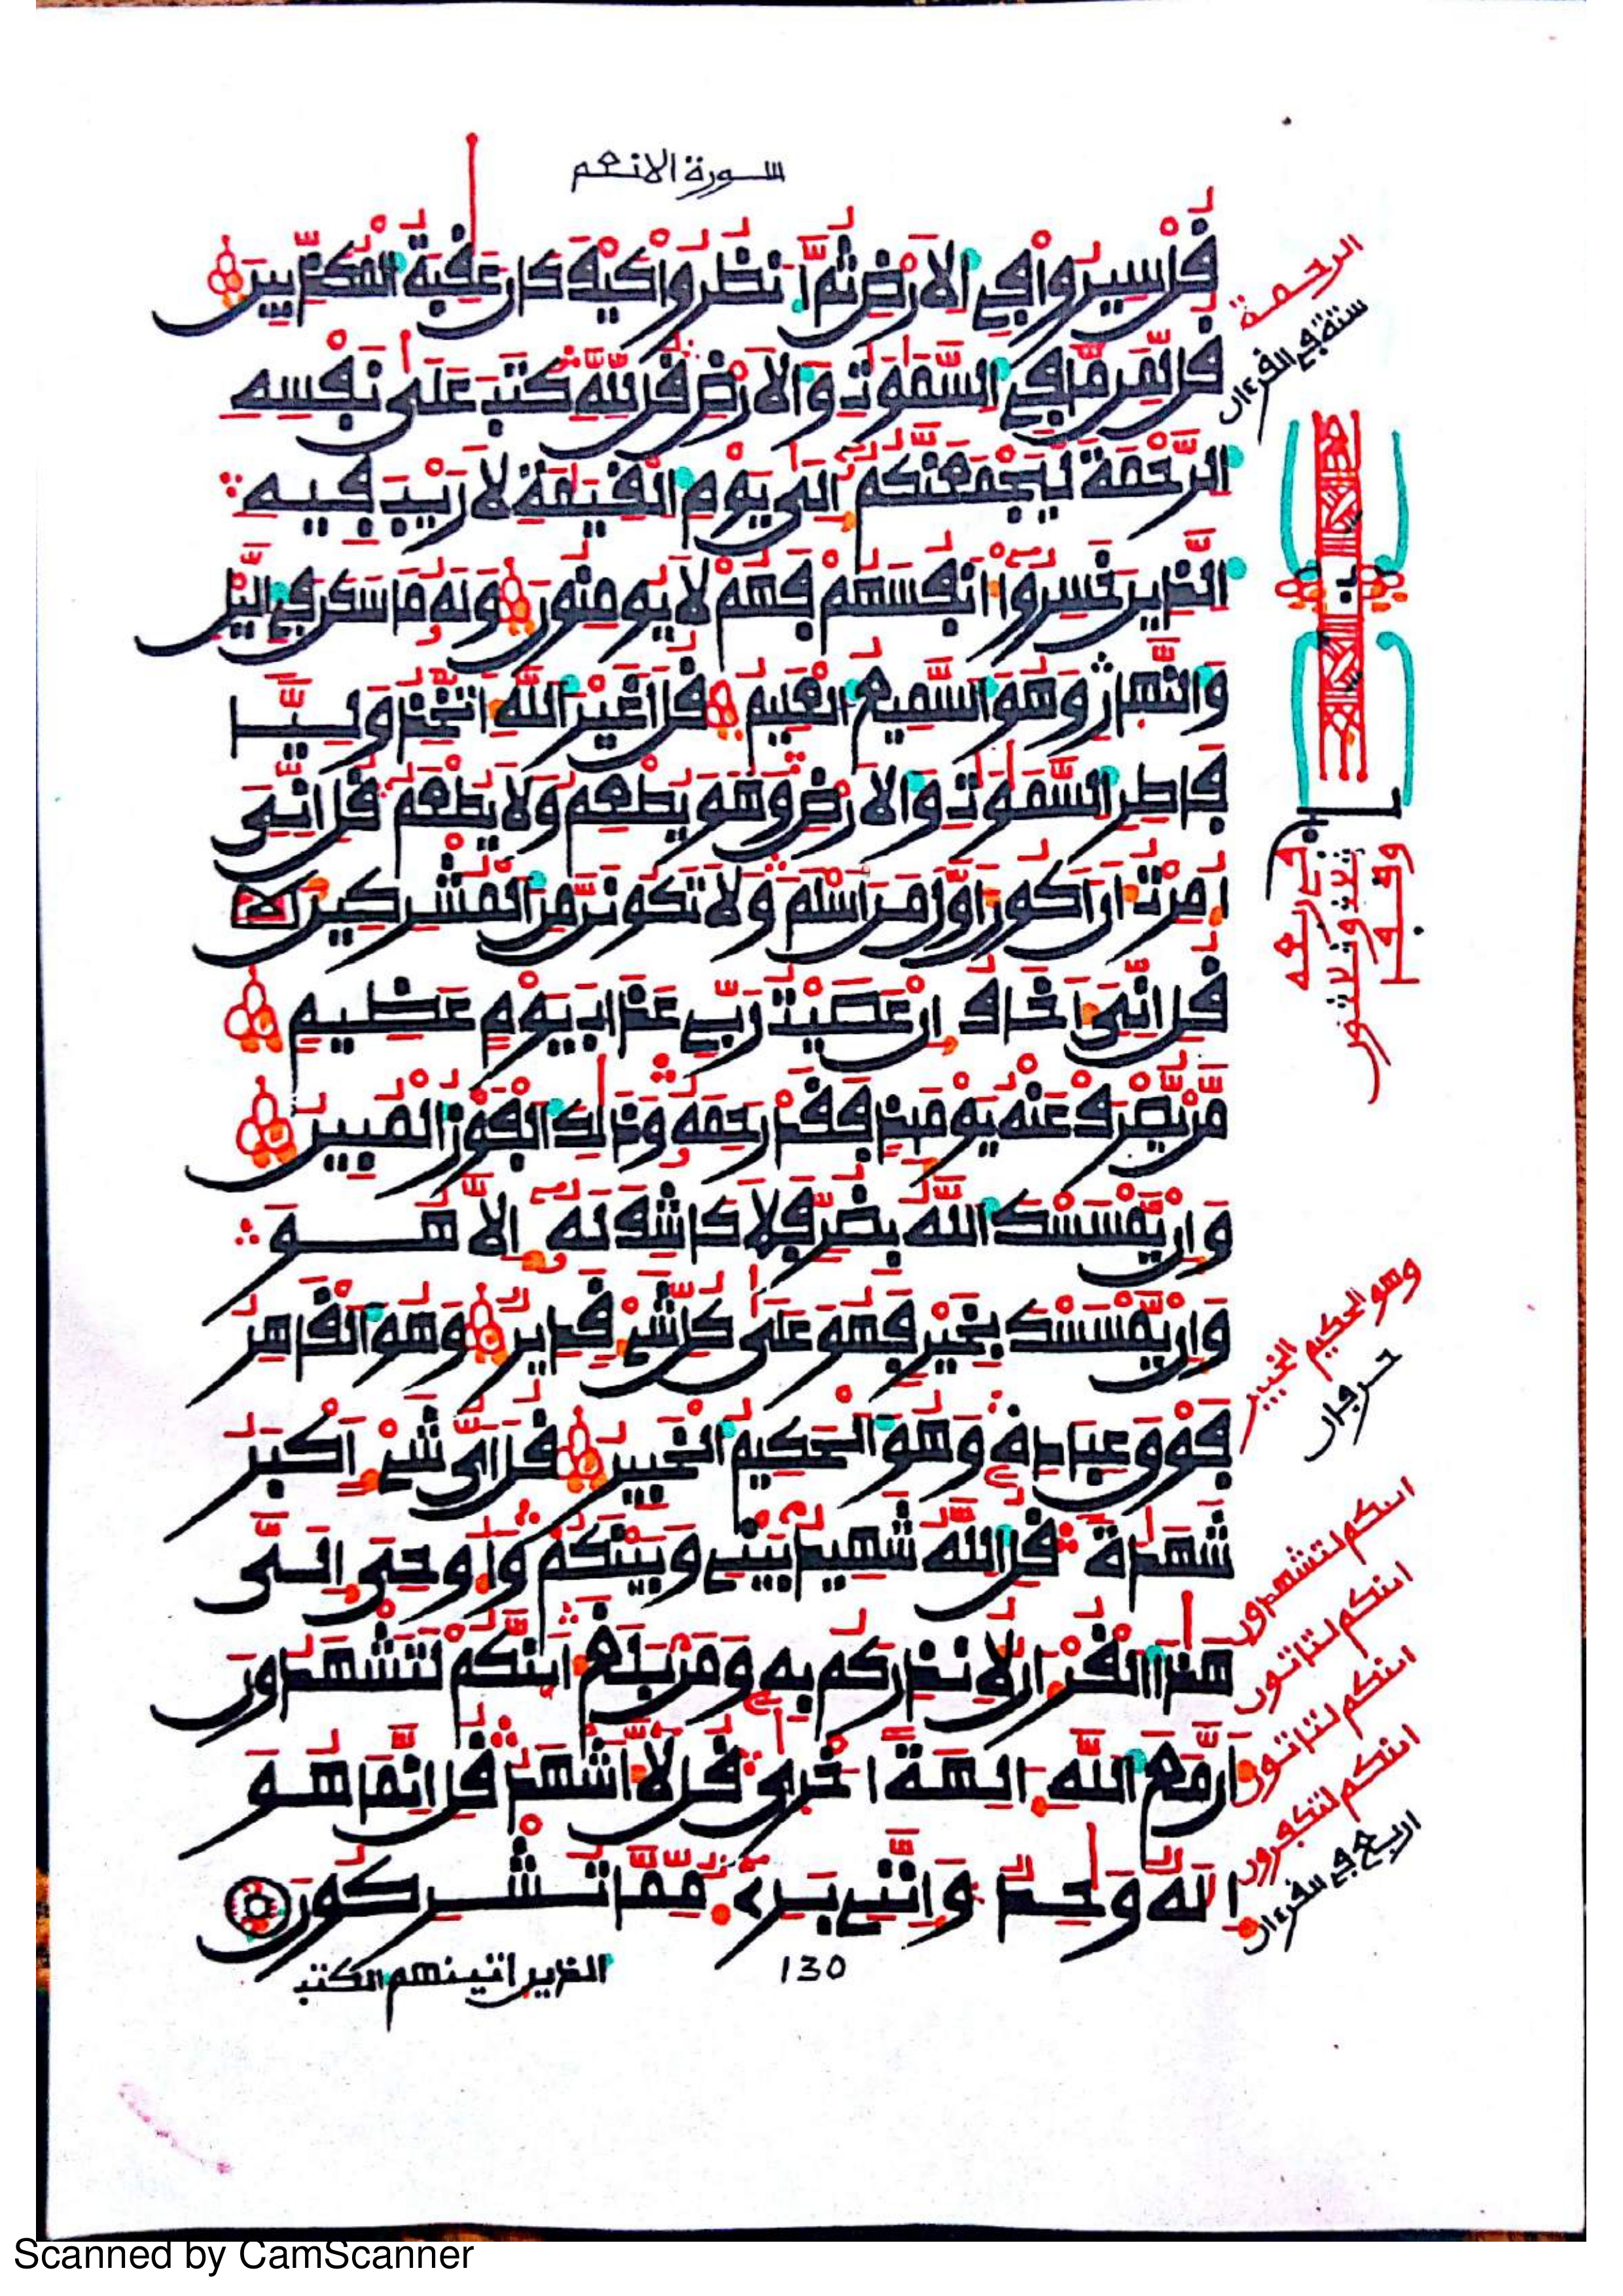 سورة الانعم
قل سيروا في الارض ثم انظروا كيف كان عقبة المكذبين
قل لمن ما في السموت والارض قل لله كتب على نفسه
الرحمة ليجمعنكم الى يوم القيمة لا ريب فيه
الذين خسروا انفسهم فهم لا يومنون وله ما سكن في اليل
والنهار وهو السميع العليم قل اغير الله اتخذ وليا
فاطر السموت والارض وهو يطعم ولا يطعم قل اني
امرت ان اكون اول من اسلم ولا تكونن من المشركين
قل اني اخاف ان عصيت ربي عذاب يوم عظيم
من يصرف عنه يوميذ فقد رحمه وذلك الفوز المبين
وان يمسسك الله بضر فلا كاشف له الا هو
وان يمسسك بخير فهو على كل شي قدير وهو القاهر
فوق عباده وهو الحكيم الخبير قل اي شي اكبر
شهدة قل الله شهيد بيني وبينكم واوحي الي
هذا القران لانذركم به ومن بلغ اينكم لتشهدون
ان مع الله الهة اخرى قل لا اشهد قل انما هو
اله وحد وانني بريء مما تشركون
الذين اتينهم الكتب
130
الرحمة
ستة في القرءان
وهو الحكيم الخبير
حرفان
اينكم لتشهدون
اينكم لتاتون
اينكم لتاتون
اينكم لتكفرون
اربع في القرءان
Scanned by CamScanner